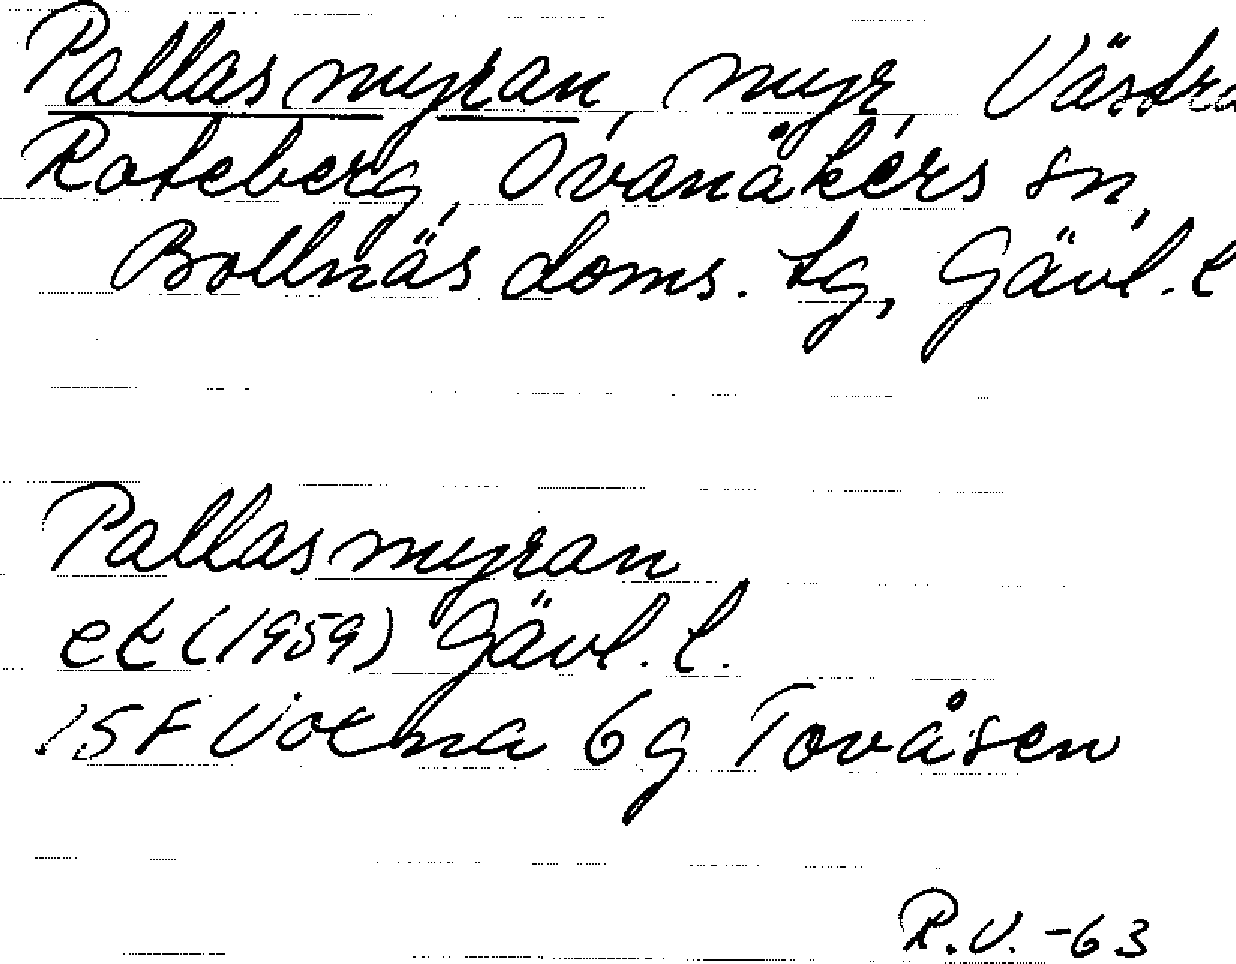 Pallasmyran, myr, Västra
Roteberg, Ovanåkers sn,
Bollnäs doms. tg, Gävl. l
Pallasmyran
ek (1959) Gävl. l.
15F Voxna 6g Tovåsen
R.V. -63